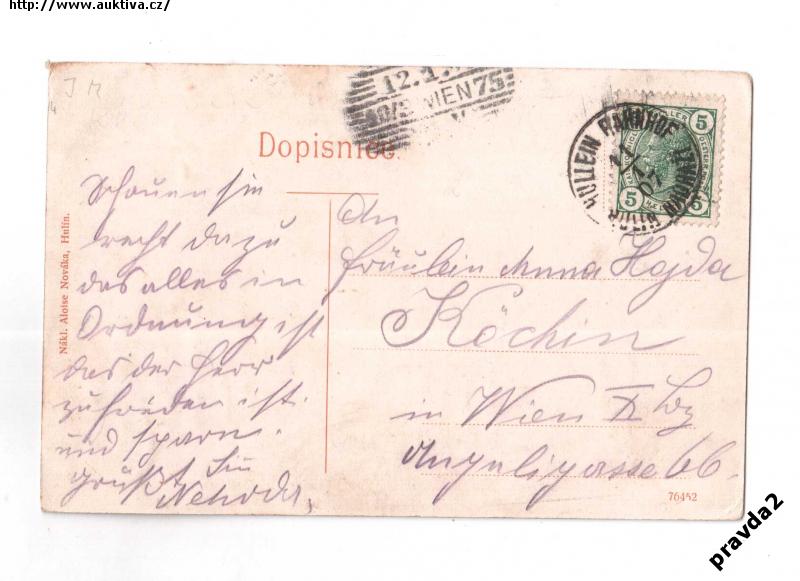 http://www.auktiva.cz/
J M
12.1.
WIEN 75
5 5
5 5
HULLEIN BAHNHOF
11
07
Dopisnice.
Schauen sie
recht dazu
das alles in
Ordnung ist
das der Herr
zufrieden ist.
und sparn.
grüßt Sie
Nehoda,
Nákl. Aloise Nováka, Hulín.
An
Fräulein Anna Hajda
Köchin
in Wien X Bz
Angeligasse 66
76452
pravda2